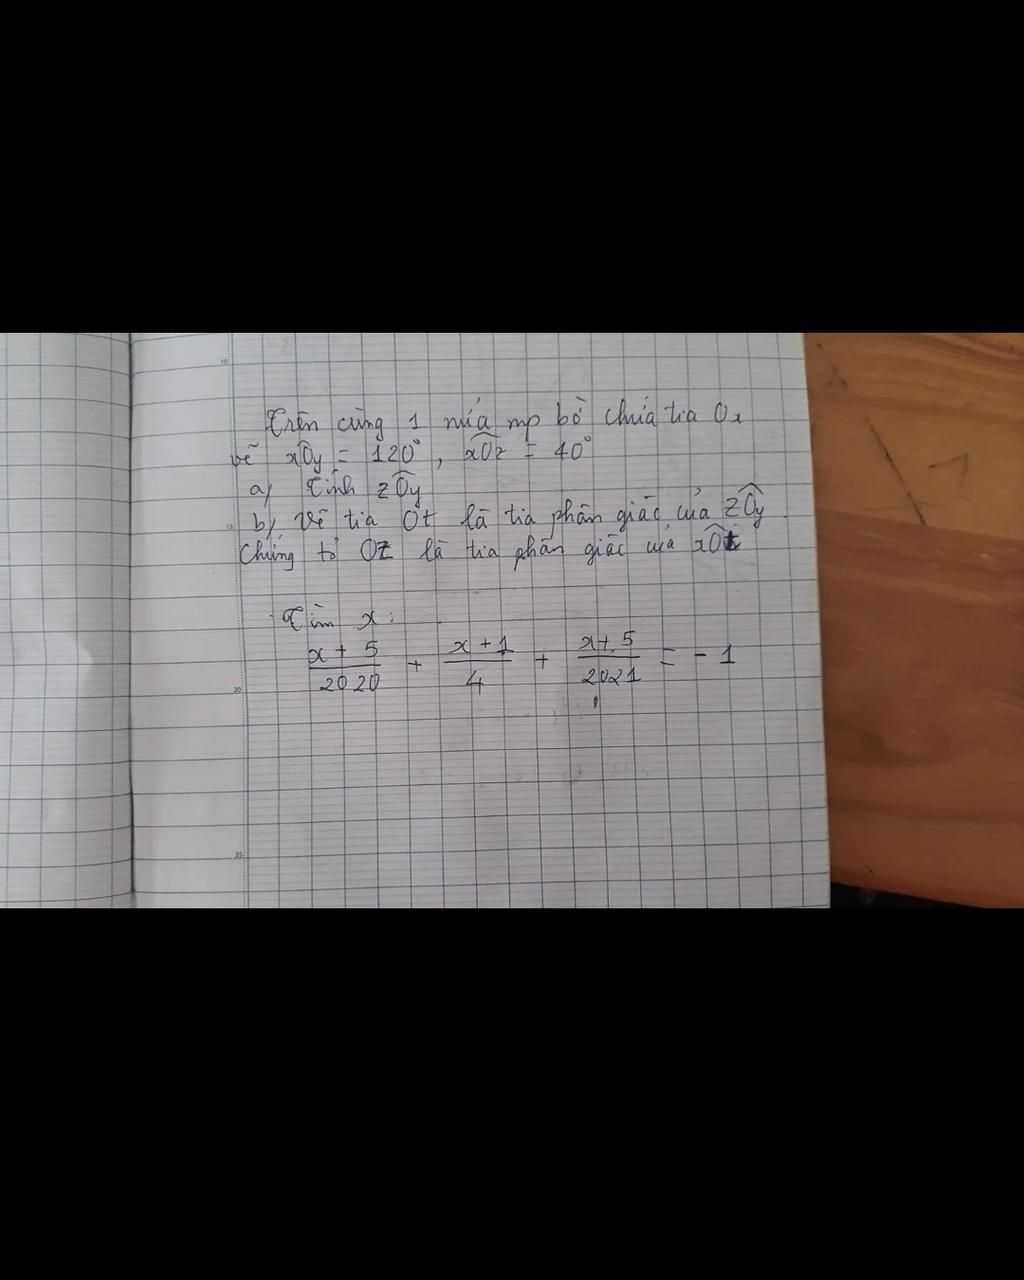 Trên cùng 1 nửa mp bờ chứa tia Ox
vẽ xÔy = 120°, xÔz = 40°
a) Tính zÔy
b) Vẽ tia Ot là tia phân giác của zÔy.
Chứng tỏ Oz là tia phân giác của xÔt
Tìm x:
(x + 5)/2020 + (x + 1)/4 + (x + 5)/2021 = - 1